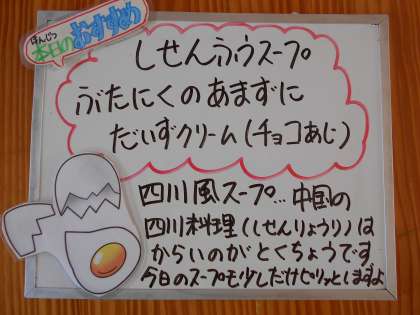 ほんじつ
本日のおすすめ
しせんふうスープ
ぶたにくのあまずに
だいずクリーム(チョコあじ)
四川風スープ…中国の
四川料理(しせんりょうり)は
からいのがとくちょうです
今日のスープも少しだけピリッとしますよ